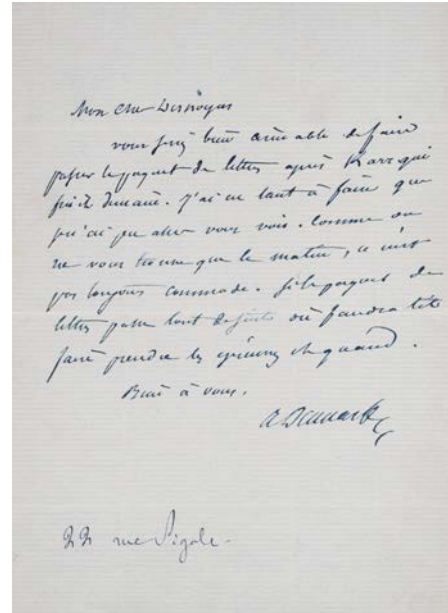 Mon cher Desnoyers
vous seriez bien aimable de faire
passer le paquet de lettres après Karr qui
finit demain. J'ai eu tant à faire que
je n'ai pu aller vous voir. Comme on
ne vous trouve que le matin, ce n'est
pas toujours commode. Si le paquet de
lettres passe tout de suite où faudra t-il
faire prendre les épreuves et quand.
Bien à vous.
22 rue Pigale